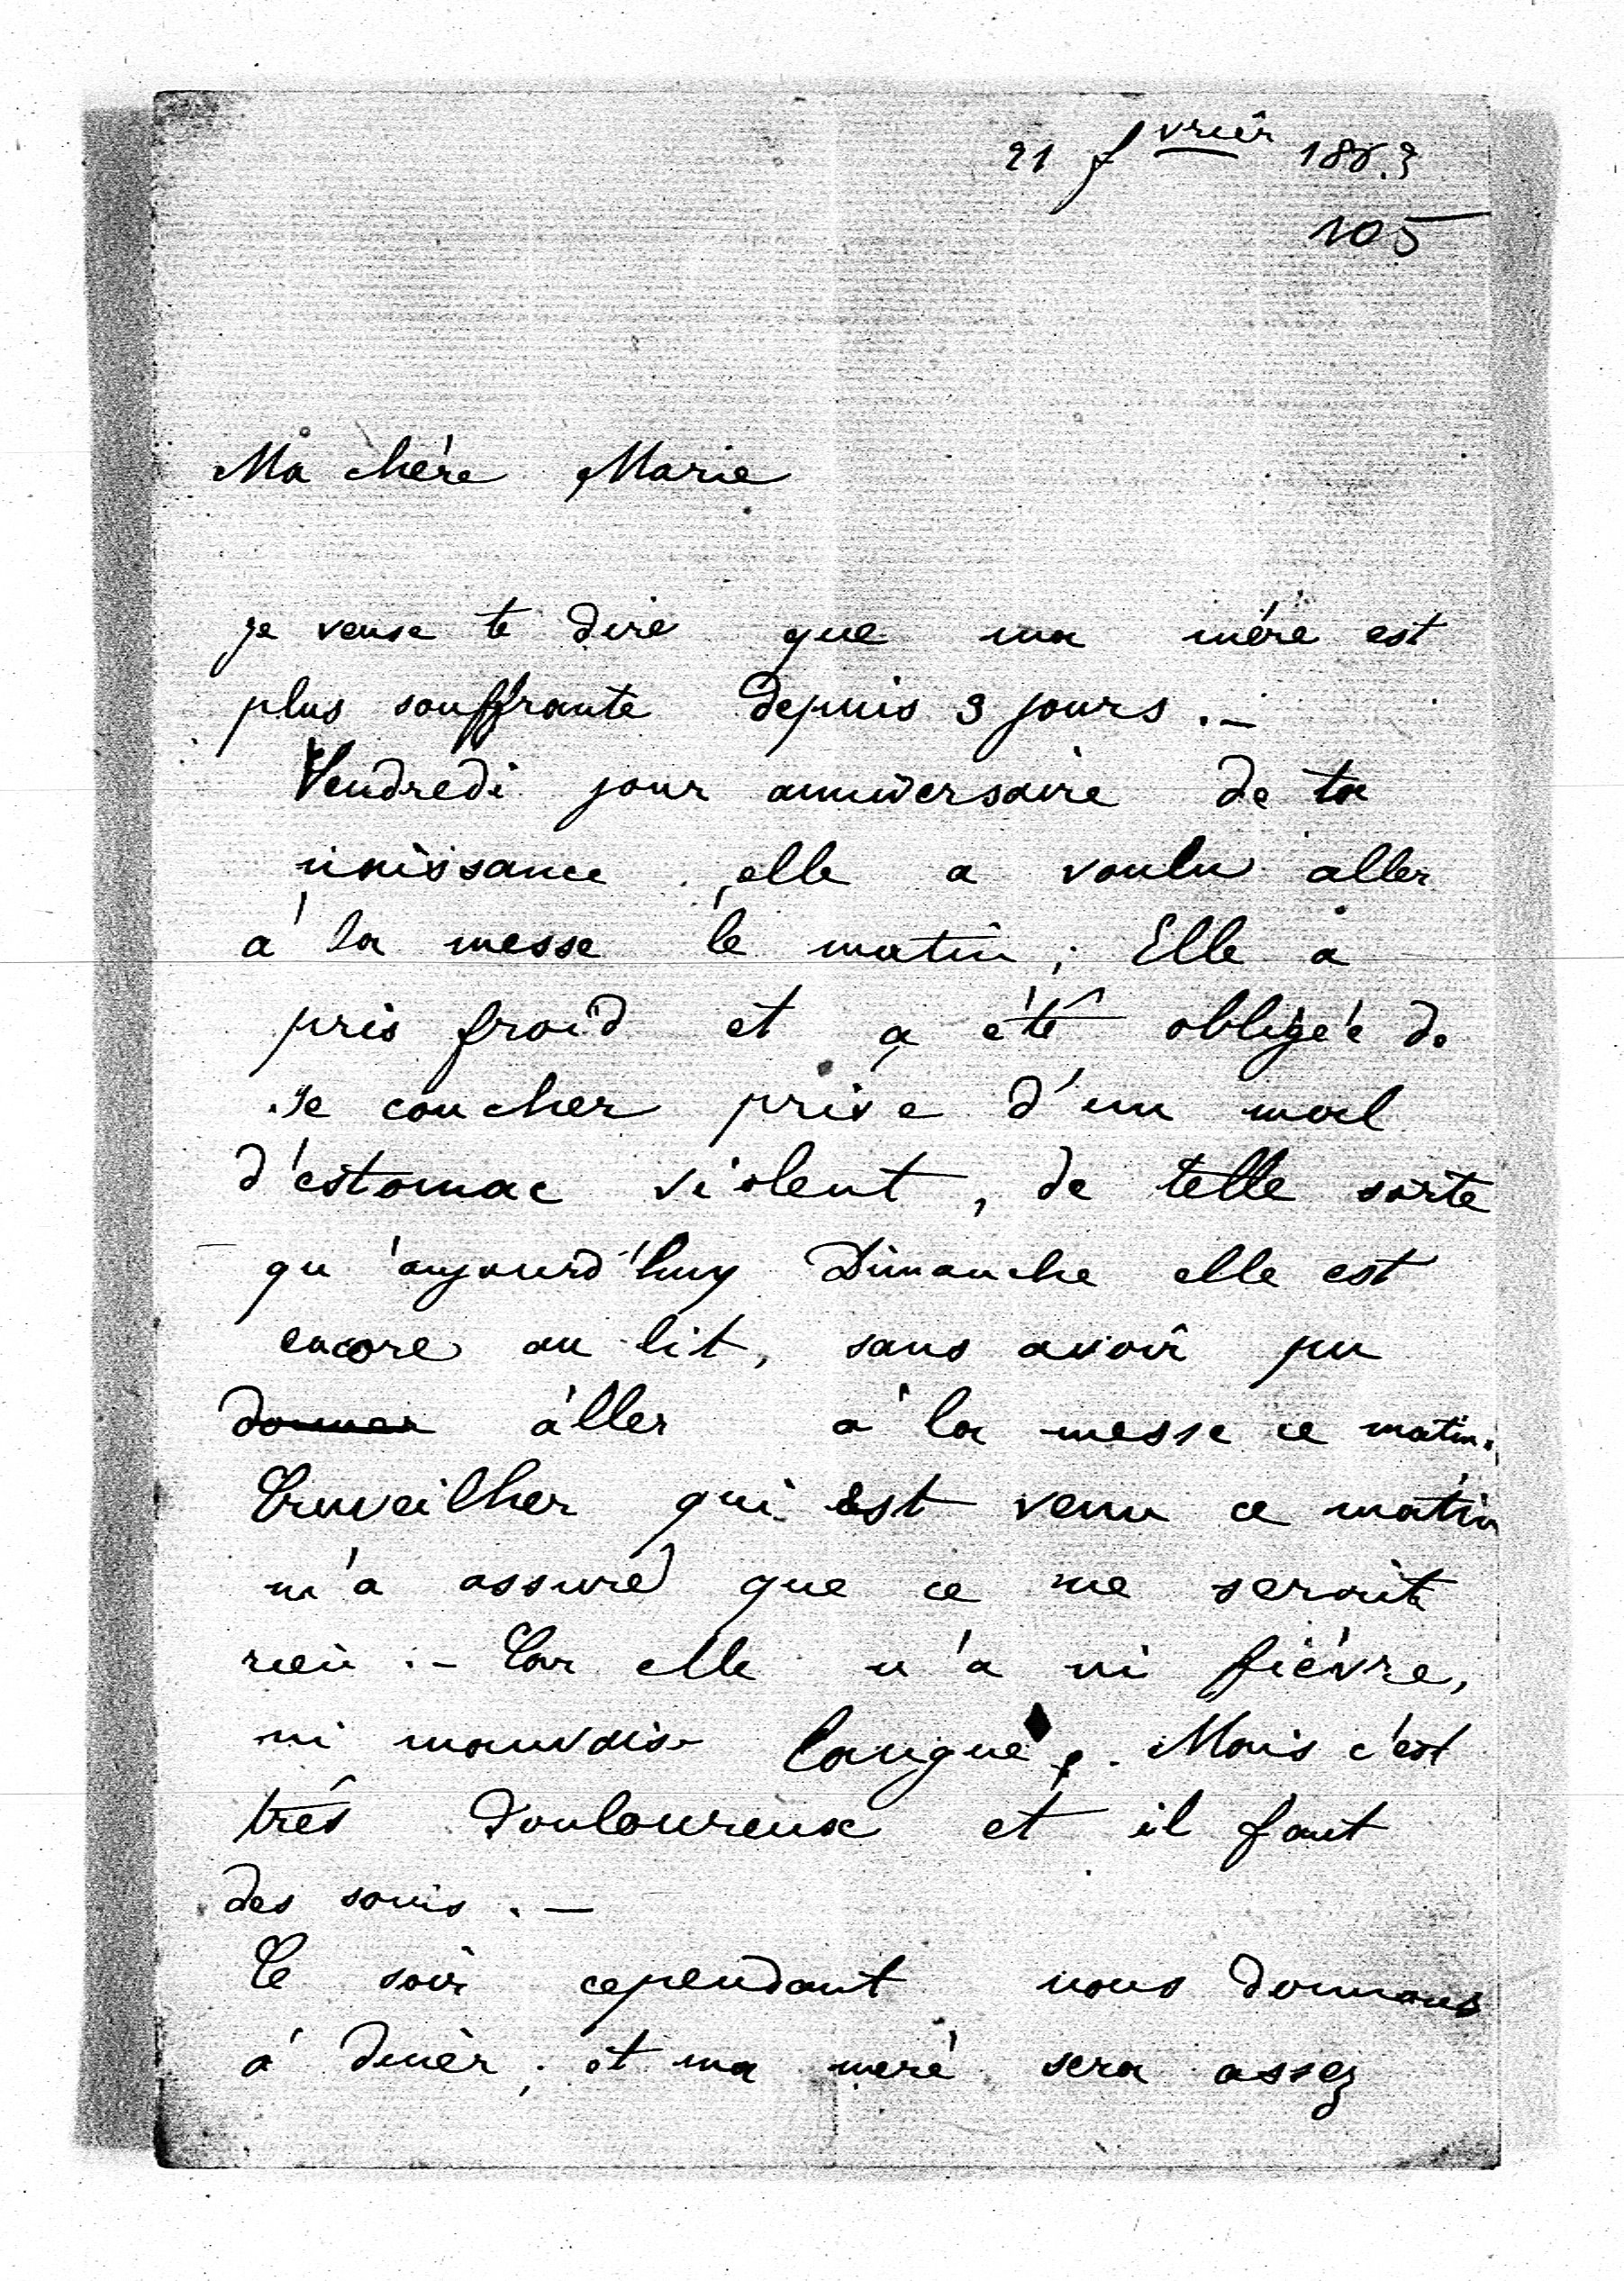 21 fvrier 1863
105
Ma chère Marie
je veux te dire que ma mère est
plus souffrante depuis 3 jours. —
Vendredi jour anniversaire de ta
naissance, elle a voulu aller
à la messe le matin; Elle a
pris froid et a été obligée de
se coucher prise d'un mal
d'estomac violent, de telle sorte
qu'aujourd'huy Dimanche elle est
encore au lit, sans avoir pu
donner aller à la messe ce matin.
Cruveilher qui est venu ce matin
m'a assuré que ce ne seroit
rien. — Car elle n'a ni fièvre,
ni mauvaise langue. Mais c'est
très douloureux et il faut
des soins. —
Ce soir cependant nous donnons
à diner, et ma mère sera assez